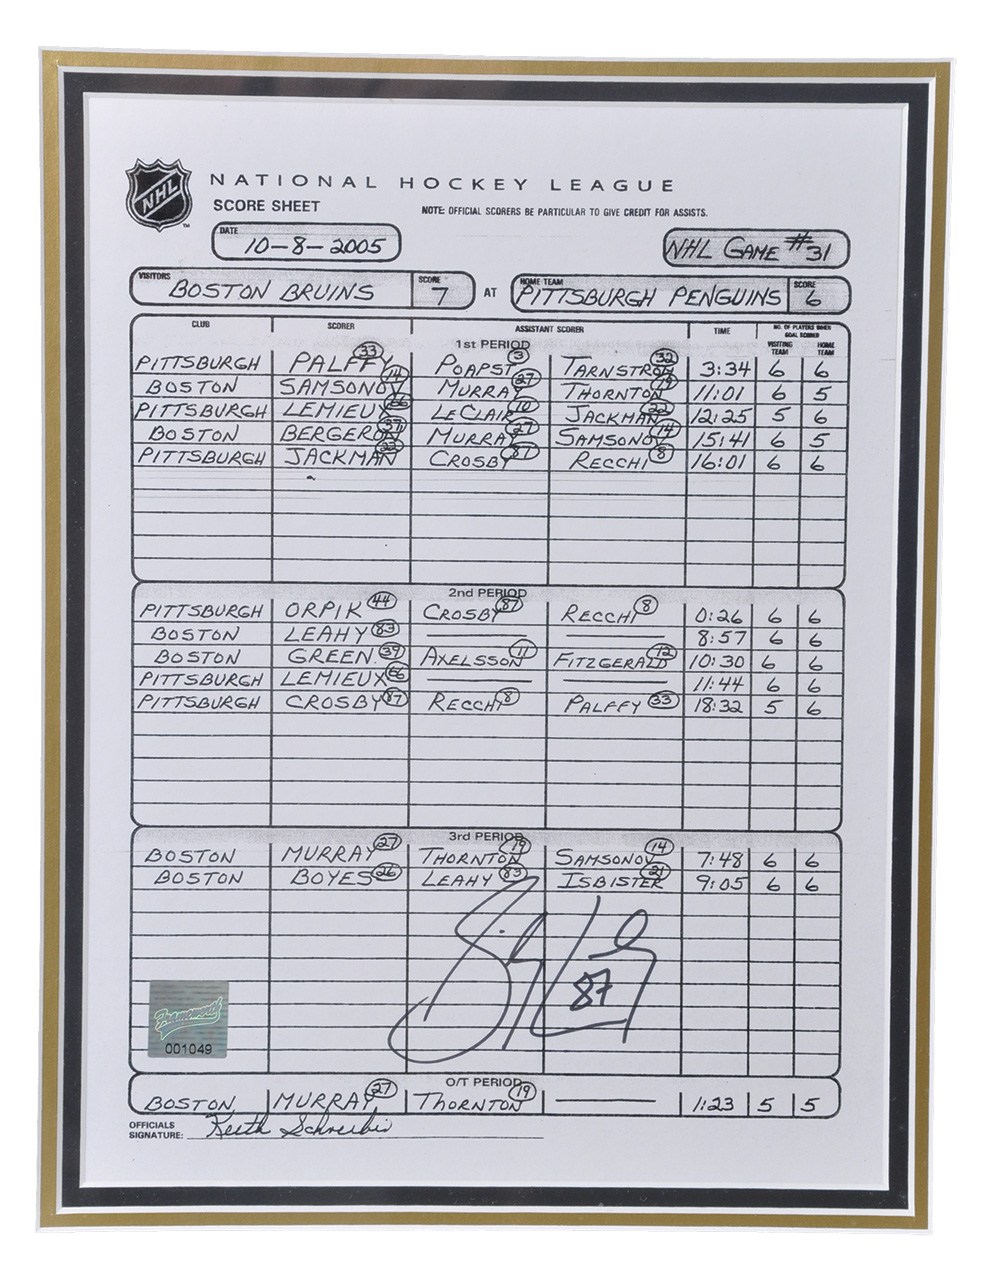 NHL
NATIONAL HOCKEY LEAGUE
TM
SCORE SHEET NOTE: OFFICIAL SCORERS BE PARTICULAR TO GIVE CREDIT FOR ASSISTS.
DATE 10-8-2005 NHL GAME #31
VISITORS BOSTON BRUINS SCORE 7 AT HOME TEAM PITTSBURGH PENGUINS SCORE 6
CLUB SCORER ASSISTANT SCORER TIME NO. OF PLAYERS WHEN GOAL SCORED
VISITING TEAM HOME TEAM
1st PERIOD
PITTSBURGH PALFFY 33 POAPST 3 TARNSTROM 32 3:34 6 6
BOSTON SAMSONOV 14 MURRAY 27 THORNTON 19 11:01 6 5
PITTSBURGH LEMIEUX 66 LECLAIR 10 JACKMAN 22 12:25 5 6
BOSTON BERGERON 37 MURRAY 27 SAMSONOV 14 15:41 6 5
PITTSBURGH JACKMAN 22 CROSBY 87 RECCHI 8 16:01 6 6
2nd PERIOD
PITTSBURGH ORPIK 44 CROSBY 87 RECCHI 8 0:26 6 6
BOSTON LEAHY 83 8:57 6 6
BOSTON GREEN 39 AXELSSON 11 FITZGERALD 12 10:30 6 6
PITTSBURGH LEMIEUX 66 11:44 6 6
PITTSBURGH CROSBY 87 RECCHI 8 PALFFY 33 18:32 5 6
3rd PERIOD
BOSTON MURRAY 27 THORNTON 19 SAMSONOV 14 7:48 6 6
BOSTON BOYES 26 LEAHY 83 ISBISTER 21 9:05 6 6
87
Frameworth
001049
O/T PERIOD
BOSTON MURRAY 27 THORNTON 19 1:23 5 5
OFFICIALS
SIGNATURE: Keith Schreiber